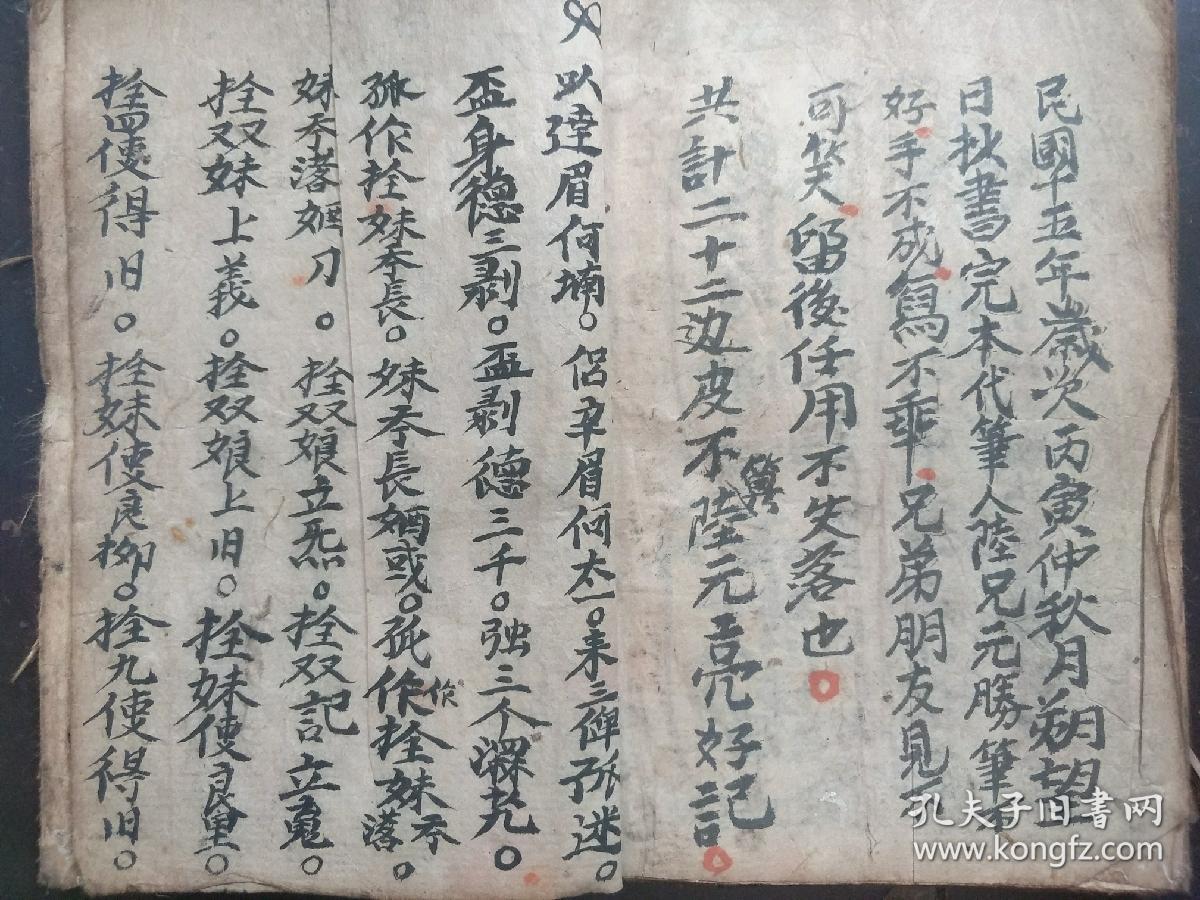 民國十五年歲次丙寅仲秋月朔望
日抄書完本代筆人陸兄元勝筆
好手不成寫不乖兄弟朋友見
可笑留後任用不失落也。
共計二十二边皮不算陸元亮好記。
以達眉何喃。侣辛眉何太。来三俾孙迷。
盃身德三剥。盃剥德三千。強三个深尭。
孤作拴妹夲長。妹夲長媔或。孤作拴妹夲落。
妹夲落媔刀。拴双娘立炁。拴双記立鬼。
拴双妹上義。拴双娘上旧。拴妹使良里。
拴四使得旧。拴妹使良柳。拴九使得旧。
孔夫子旧书网
www.kongfz.com